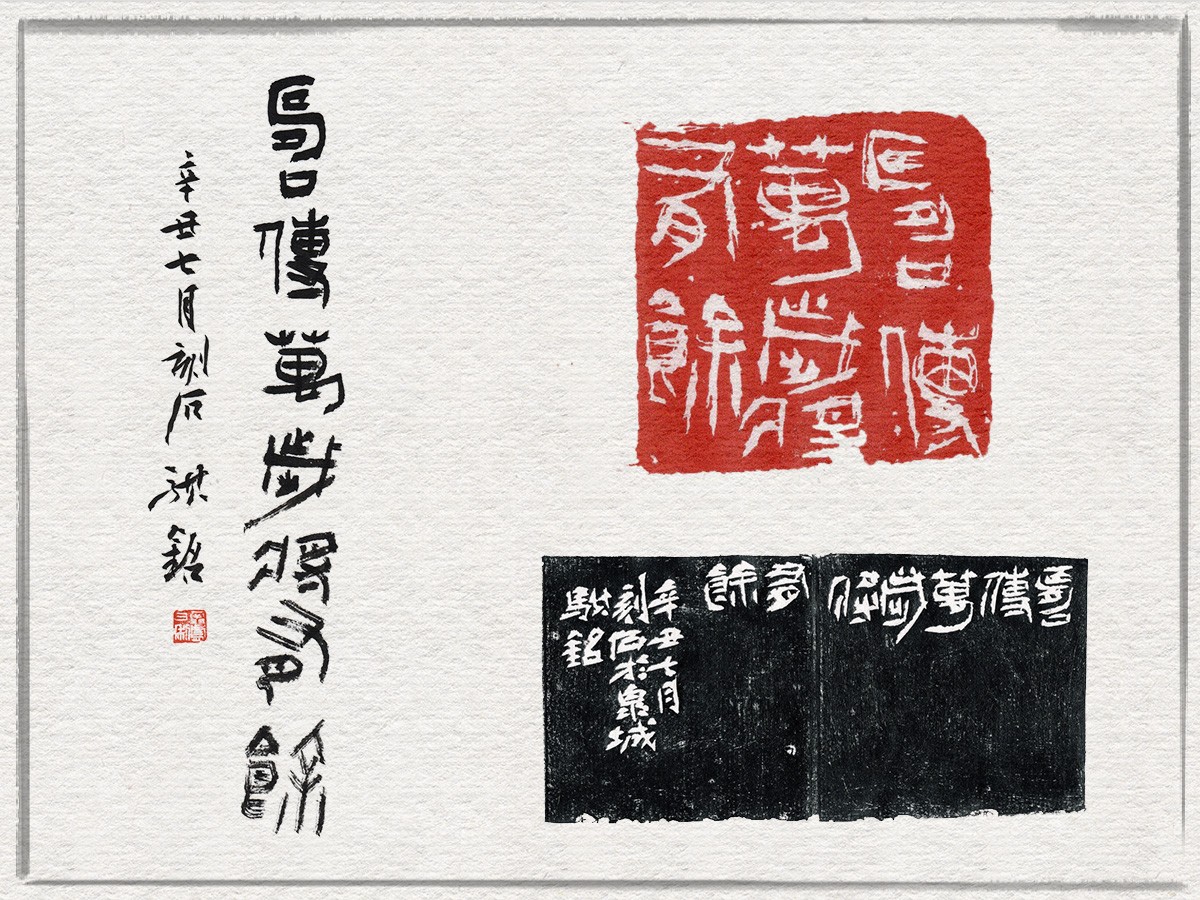 傳萬歲有餘
辛丑七月刻石 銘
傳
萬歲
有餘
傳萬歲
有餘
辛丑七月
刻石於泉城
銘